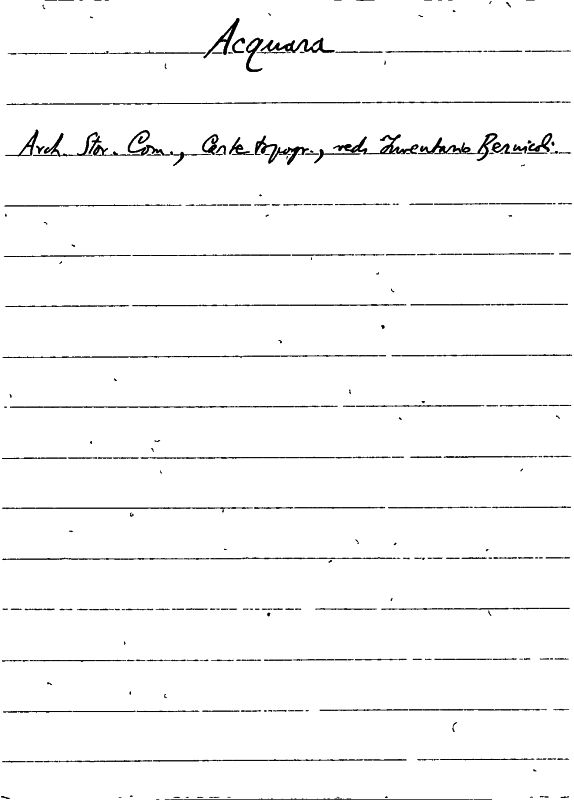 Acquara
Arch. Stor. Com., Carte topogr., ved. Inventario Bernicoli.